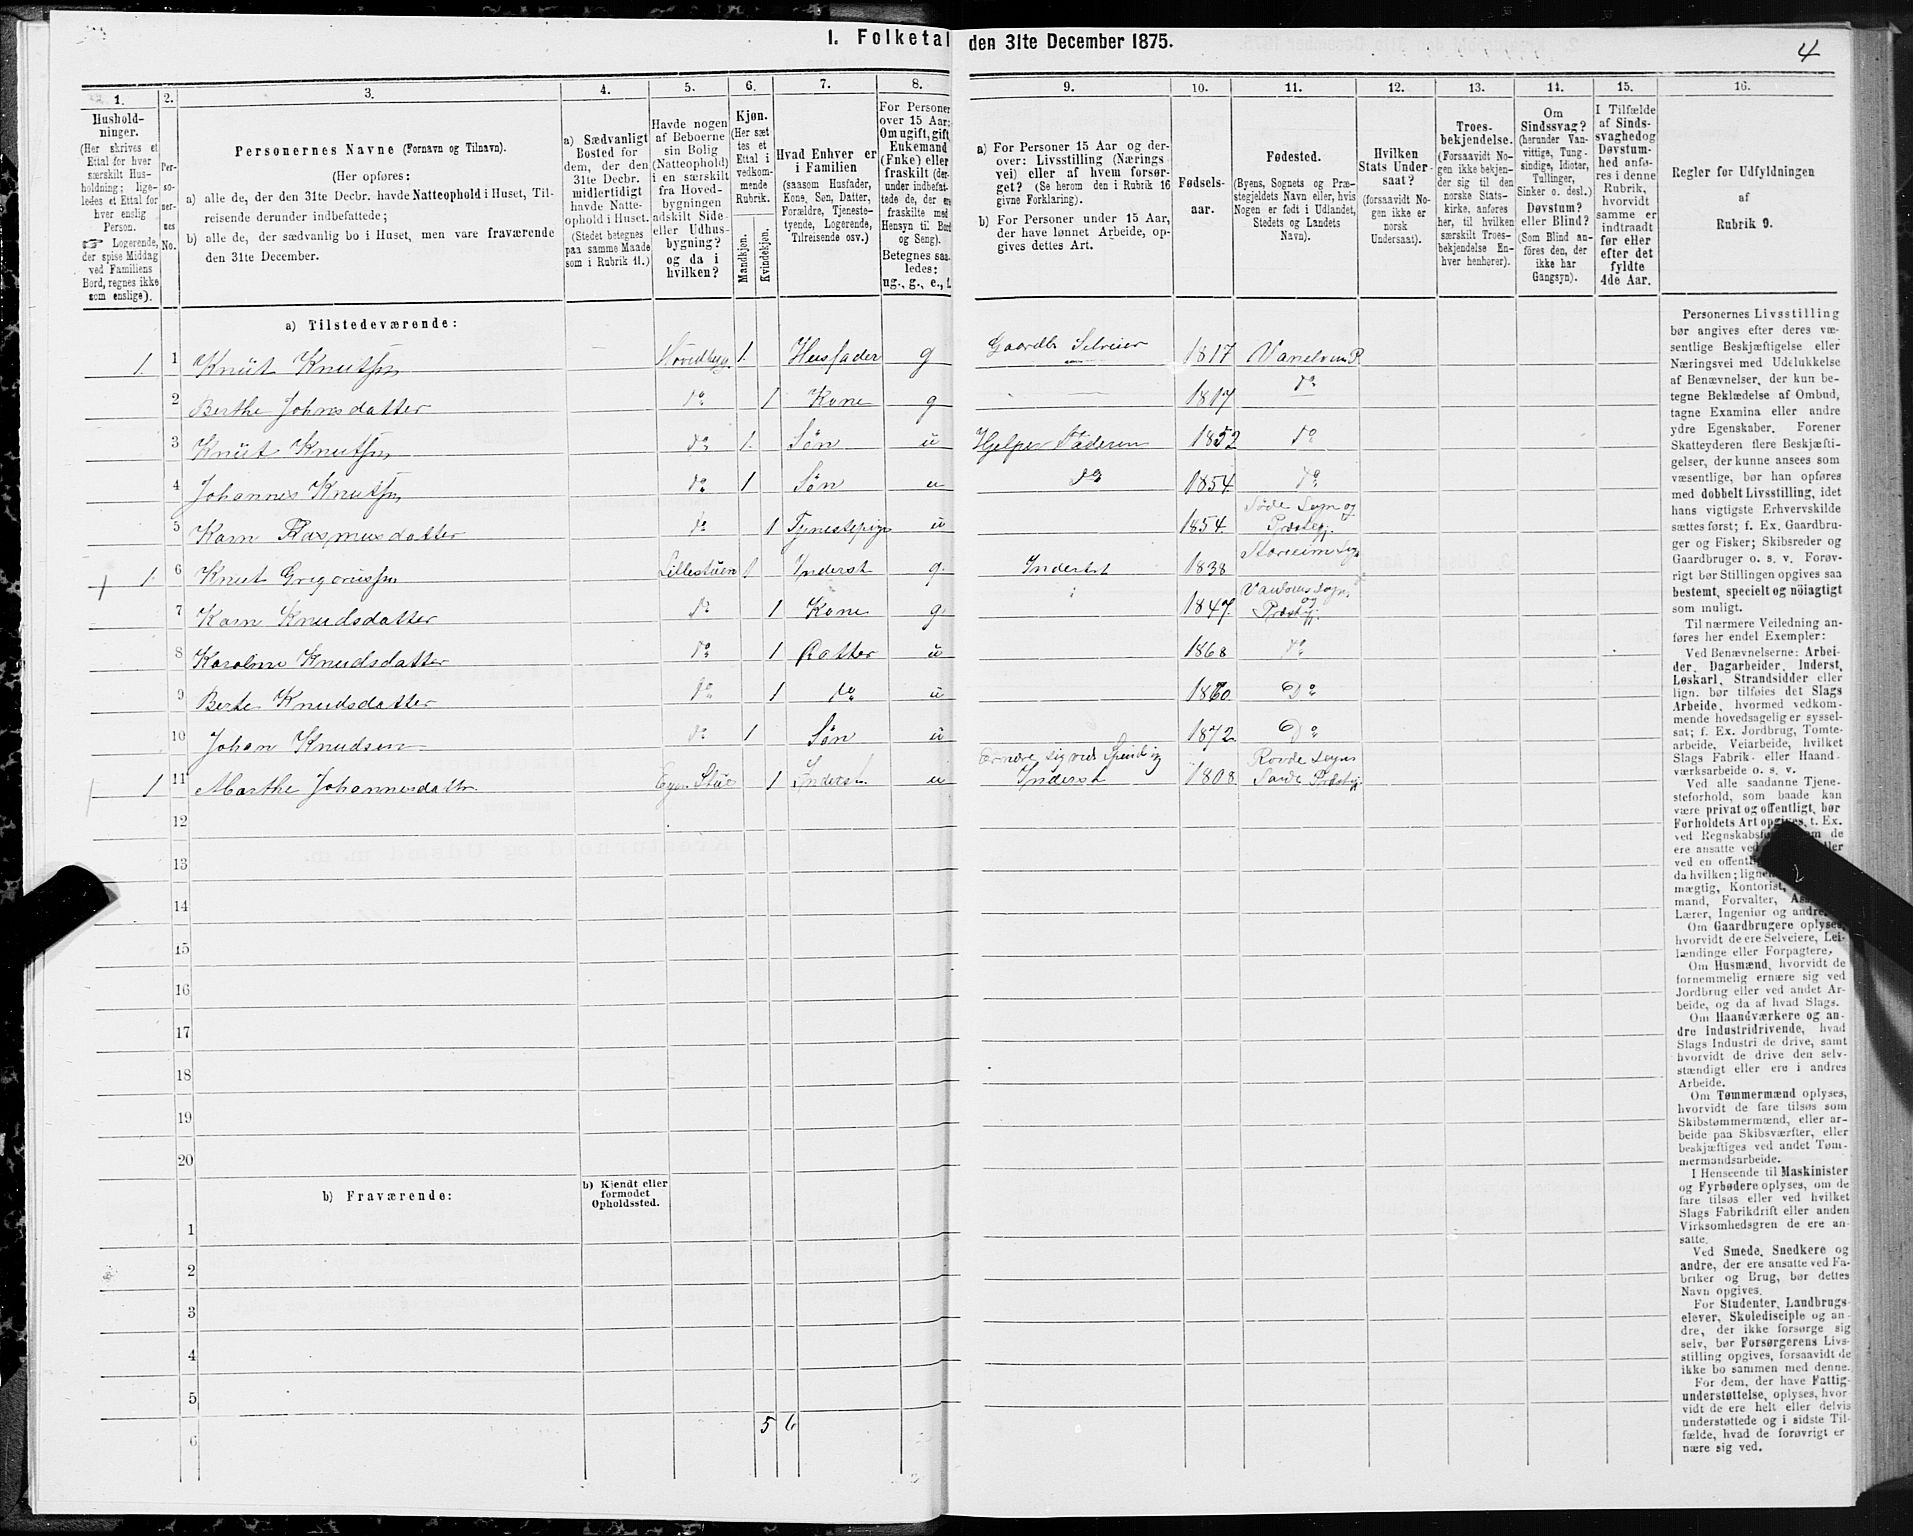 I. Folketal den 31te December 1875.
4
1. 2. 3. 4. 5. 6. 7. 8. 9. 10. 11. 12. 13. 14. 15. 16.
Hushold-
ninger.
(Her skrives et
Ettal for hver
særskilt Hus-
holdning; lige-
ledes et Ettal for
hver enslig
Person.
☞ Logerende,
der spise Middag
ved Familiens
Bord, regnes ikke
som enslige).
Per-
so-
ner-
nes
No.
Personernes Navne (Fornavn og Tilnavn).
(Her opføres:
a) alle de, der den 31te Decbr. havde Natteophold i Huset, Til-
reisende derunder indbefattede;
b) alle de, der sædvanlig bo i Huset, men vare fraværende
den 31te December.
a) Sædvanligt
Bosted for
dem, der den
31te Decbr.
midlertidigt
havde Natte-
ophold i Huset.
(Stedet betegnes
paa samme Maade
som i Rubrik 11.)
Havde nogen
af Beboerne
sin Bolig
(Natteophold)
i en særskilt
fra Hoved-
bygningen
adskilt Side-
eller Udhus-
bygning?
og da i
hvilken?
Kjøn.
(Her sæt
tes et
Ettal i
vedkom-
mende
Rubrik.
Mandkjøn.
Kvindekjøn.
Hvad Enhver er
i Familien
(saasom Husfader,
Kone, Søn, Datter,
Forældre, Tjeneste-
tyende, Logerende,
Tilreisende osv.)
For Personer
over 15 Aar:
Om ugift, gift,
Enkemand
(Enke) eller
fraskilt (der-
under indbefat-
tede de, der ere
fraskilte med
Hensyn til Bord
og Seng).
Betegnes saa-
ledes:
ug., g., e., f.
a) For Personer 15 Aar og der-
over: Livsstilling (Nærings
vei) eller af hvem forsør-
get? (Se herom den i Rubrik 16
givne Forklaring).
b) For Personer under 15 Aar,
der have lønnet Arbeide, op-
gives dettes Art.
Fødsels-
aar.
Fødested.
(Byens, Sognets og Præ-
stegjeldets Navn eller, hvis
Nogen er født i Udlandet,
Stedets og Landets
Navn).
Hvilken
Stats Under-
saat?
(forsaavidt No-
gen ikke er
norsk
Undersaat).
Troes-
bekjendelse.
(Forsaavidt No-
gen ikke bekjen-
der sig til den
norske Stats-
kirke, anføres
her, til hvilken
særskilt Troes-
bekjendelse En-
hver henhører).
Om
Sindssvag?
(herunder Van-
vittige, Tung-
sindige, Idioter,
Tullinger,
Sinker o. desl.)
Døvstum?
eller Blind?
(Som Blind an-
føres den, der
ikke har
Gangsyn).
I Tilfælde
af Sinds-
svaghed og
Døvstum-
hed anfø-
res i denne
Rubrik,
hvorvidt
samme er
indtraadt
før eller
efter det
fyldte
4de Aar.
Regler for Udfyldningen
af
Rubrik 9.
a) Tilstedeværende:
1 1 Knüt Knutsen Hovedbyg. 1. Husfader g Gaardbr Selveier 1817 Vanelven P.
2 Berthe Johnsdatter do 1 Kone g 1817 do
3 Knüt Knutsen do 1. Søn u Hjelper Faderen 1852 do
4 Johannes Knutsen do 1 Søn u do 1854 do
5 Karn Rasmusdatter do 1 Tjenestepige u 1854. Søde Sogn og Præstegj.
1 6 Knut Grigoriussen Lillestuen 1 Inderst g. Inderst 1838 Sogn
7 Karn Knudsdatter do 1 Kone g 1847. Sogn og Præstegj.
8 Karoline Knudsdatter do 1 Datter u 1868 do
9 Berte Knudsdatter do 1 do u 1870. Do
10 Johan Knudsen do 1 Søn u 1872 Do
1 11 Marthe Johannesdatter Egen Stue 1 Inderst u Ernære sig ved Spind ig Inderst 1808 Rovde Sogn Præstegj.
12
13
14
15
16
17
18
19
20
b) Fraværende:
b) Kjendt eller
formodet
Opholdssted.
1
2
3
4
5
6
5 6
Personernes Livsstilling
bør angives efter deres væ-
sentlige Beskjæftigelse eller
Næringsvei med Udelukkelse
af Benævnelser, der kun be-
tegne Beklædelse af Ombud,
tagne Examina eller andre
ydre Egenskaber. Forener
Skatteyderen flere Beskjæfti-
gelser, der kunne ansees som
væsentlige, bør han opføres
med dobbelt Livsstilling, idet
hans vigtigste Erhvervskilde
sættes først; f. Ex. Gaardbru-
ger og Fisker; Skibsreder og
Gaardbruger o. s. v. Forøv-
rigt bør Stillingen opgives saa
bestemt, specielt og nöiagtigt
som muligt.
Til nærmere Veiledning an-
føres her endel Exempler:
Ved Benævnelserne: Arbei-
der, Dagarbeider, Inderst,
Løskarl, Strandsidder eller
lign. bør tilføies det Slags
Arbeide, hvormed vedkom-
mende hovedsagelig er syssel-
sat; f. Ex. Jordbrug, Tomte-
arbeide, Veiarbeide, hvilket
Slags Fabrik- eller Haand-
værksarbeide o. s. v.
Ved alle saadanne Tjene-
steforhold, som baade kan
være privat og offentligt, bør
Forholdets Art opgives, t. Ex.
ved de
ere ansatte ved
ved en offentlig
da hvilken; lignende
mægtig, Kontorist,
mand, Forvalter,
Lærer, Ingeniør og andre.
Om Gaardbrugere oplyses,
hvorvidt de ere Selveiere, Lei-
lændinge eller Forpagtere.
Om Husmænd, hvorvidt de
fornemmelig ernære sig ved
Jordbrug eller ved andet Ar-
beide, og da af hvad Slags.
Om Haandværkere og an-
dre Industridrivende, hvad
Slags Industri de drive, samt
hvorvidt de drive den selv-
stændigt eller ere i andres
Arbeide.
Om Tømmermænd oplyses,
hvorvidt de fare tilsøs som
Skibstømmermænd, eller ar-
beide paa Skibsværfter, eller
beskjæftiges ved andet Tøm-
mermandsarbeide.
I Henseende til Maskinister
og Fyrbødere oplyses, om de
fare tilsøs eller ved hvilket
Slags Fabrikdrift eller anden
Virksomhedsgren de ere an-
satte.
Ved Smede, Snedkere og
andre, der ere ansatte ved Fa-
briker og Brug, bør dettes
Navn opgives.
For Studenter, Landbrugs-
elever, Skoledisciple og an-
dre, der ikke forsørge sig
selv, bør Forsørgerens Livs-
stilling opgives, forsaavidt de
ikke bo sammen med denne.
For dem, der have Fattig-
understøttelse, oplyses, hvor-
vidt de ere helt eller delvis
understøttede og i sidste Til-
fælde, hvad de forøvrigt er
nære sig ved.